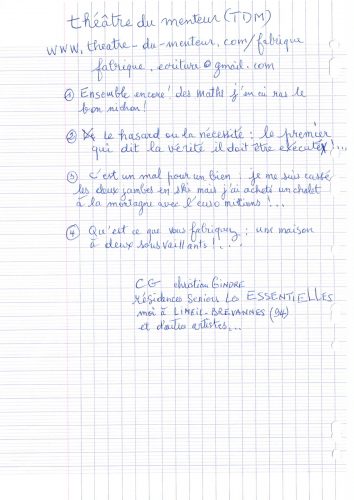 théâtre du menteur (TDM)
www.theatre-du-menteur.com/fabrique
fabrique.ecriture@gmail.com
① Ensemble encore! des maths j'en ai ras le
bon nichon!
② le hasard ou la nécessité : le premier
qui dit la vérité il doit être exécuté!...
③ C'est un mal pour un bien : je me suis cassé
les deux jambes en ski mais j'ai acheté un chalet
à la montagne avec l'euro millions!...
④ Qu'est ce que vous fabriquez : une maison
à deux sous vaillants!...
CG christian GINDRE
résidences seniors LES ESSENTIELLES
moi à LIMEIL-BREVANNES (94)
et d'autres artistes...